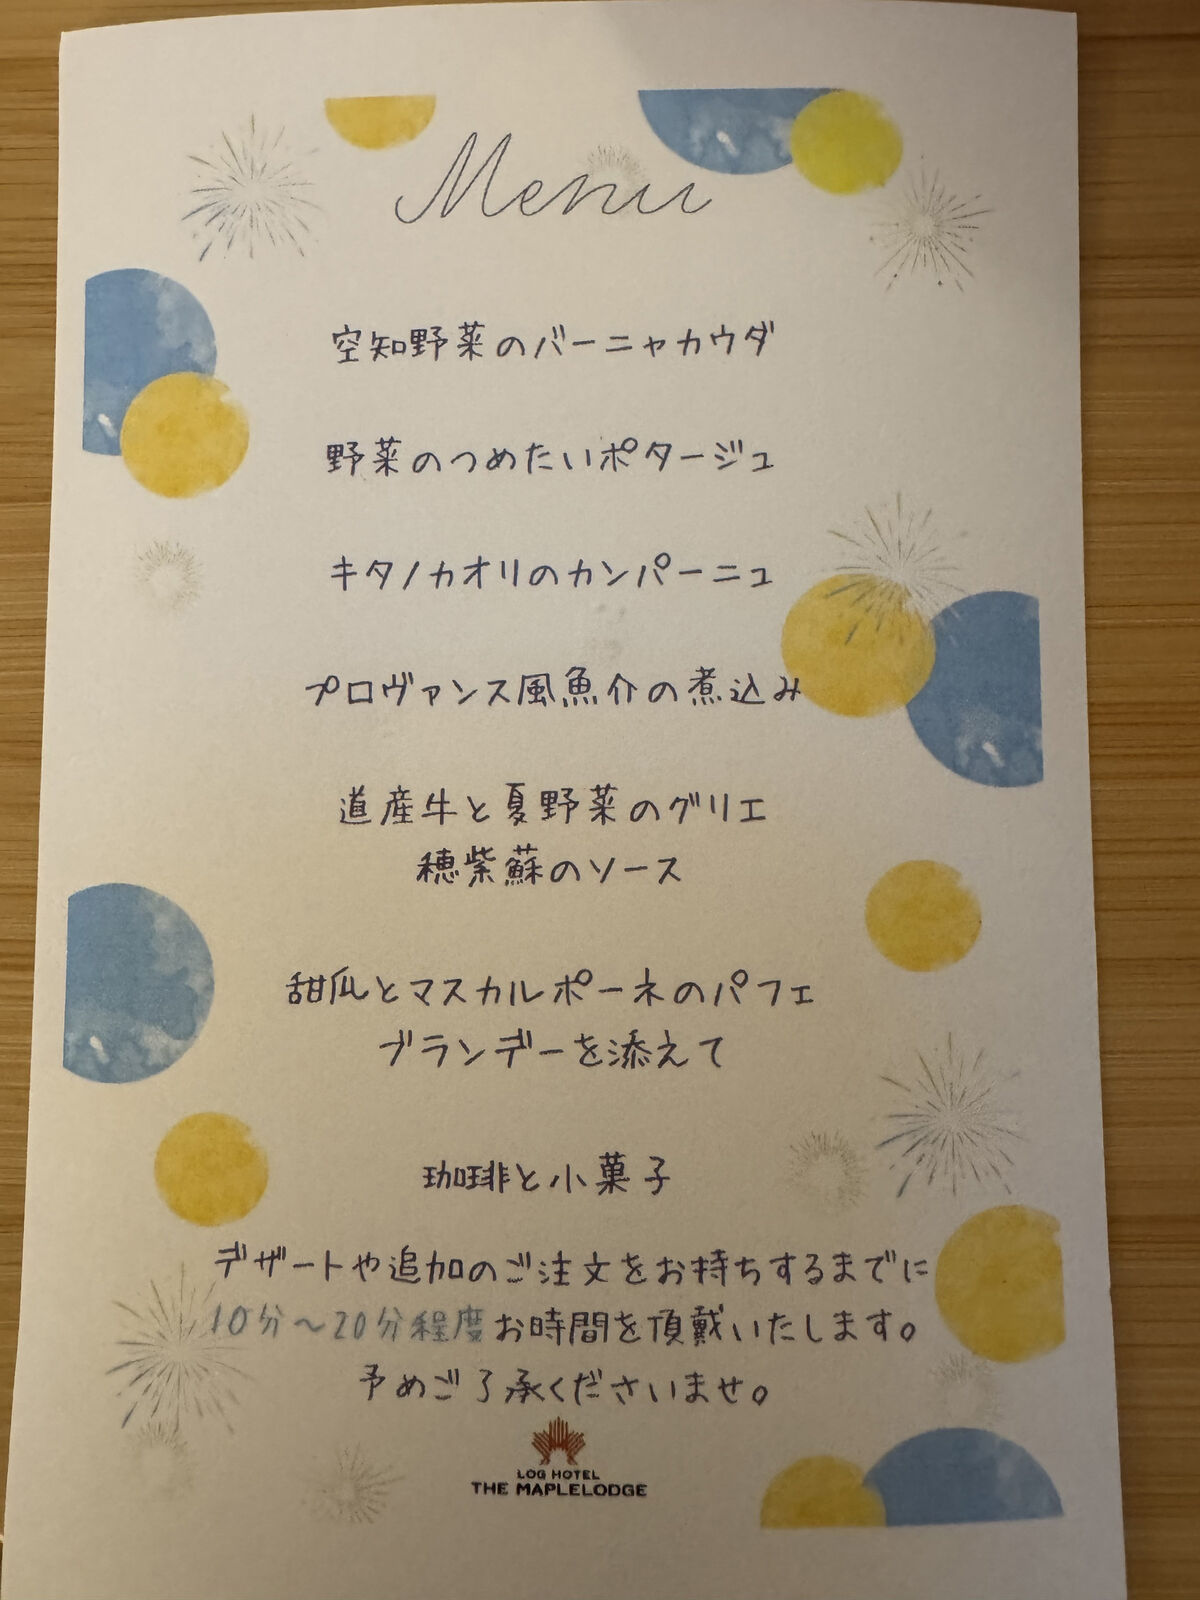 Menu
空知野菜のバーニャカウダ
野菜のつめたいポタージュ
キタノカオリのカンパーニュ
プロヴァンス風魚介の煮込み
道産牛と夏野菜のグリエ
穂紫蘇のソース
甜瓜とマスカルポーネのパフェ
ブランデーを添えて
珈琲と小菓子
デザートや追加のご注文をお持ちするまでに
10分～20分程度お時間を頂戴いたします。
予めご了承くださいませ。
LOG HOTEL
THE MAPLELODGE